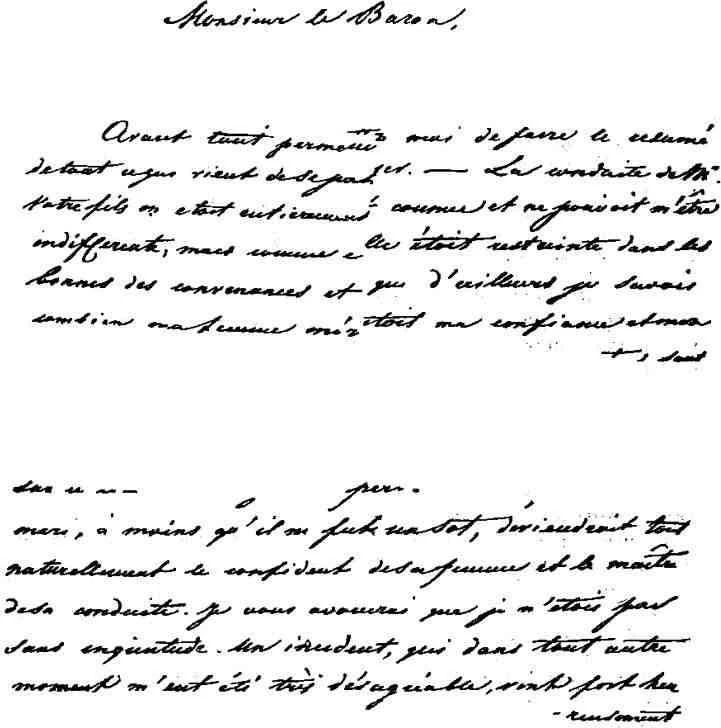 Monsieur le Baron,
Avant tout permettez moi de faire le resumé
de tout ce qui vient de se passer. — La conduite de Mr
Votre fils m'etoit entierement connue et ne pouvoit m'être
indifferente, mais comme elle étoit restrainte dans les
bornes des convenances et que d'ailleurs je savois
combien ma femme méritoit ma confiance et mon
mari, à moins qu'il ne fut un sot, devienderoit tout
naturellement le confident de sa femme et le maître
de sa conduite. Je vous avouerai que je n'étois pas
sans inquietude. Un incident, qui dans tout autre
moment m'eut été très désagréable, vint fort heu
-reusement